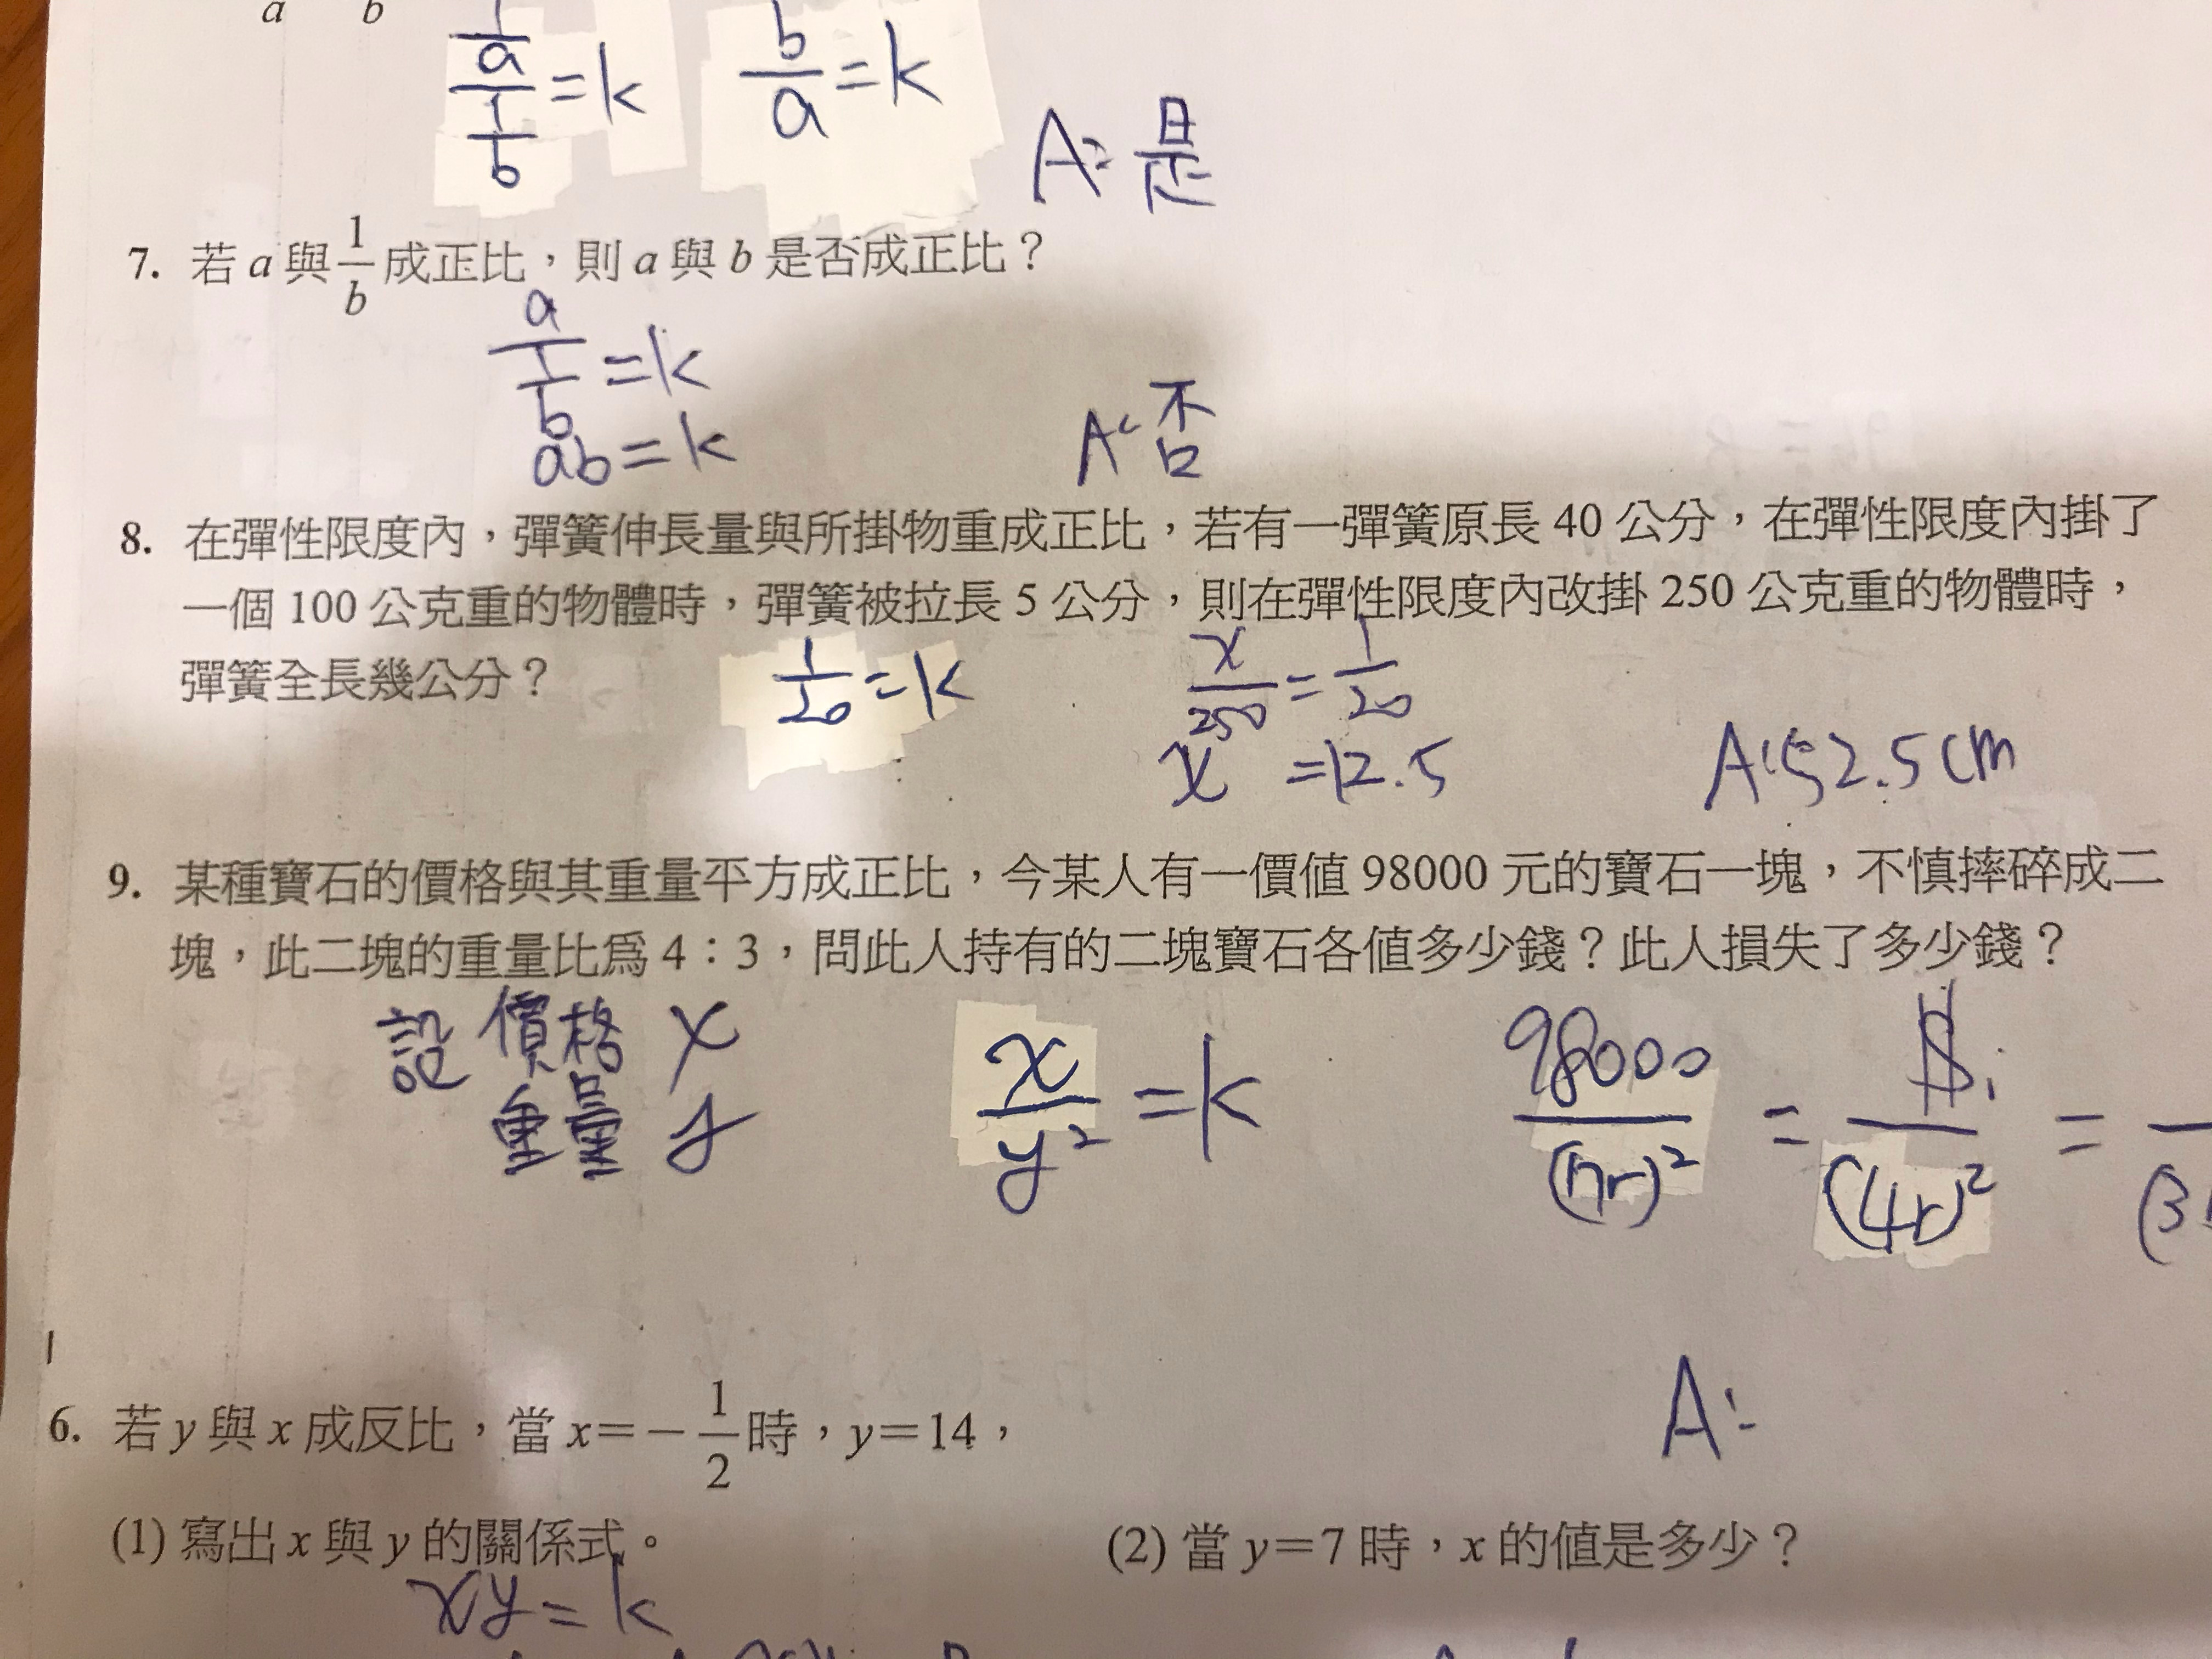 a b
1/a / 1/b = k b/a = k
A: 是
7. 若 a 與 1/b 成正比，則 a 與 b 是否成正比？
a / 1/b = k
ab = k A: 否
8. 在彈性限度內，彈簧伸長量與所掛物重成正比，若有一彈簧原長 40 公分，在彈性限度內掛了
一個 100 公克重的物體時，彈簧被拉長 5 公分，則在彈性限度內改掛 250 公克重的物體時，
彈簧全長幾公分？ 1/20 = k x/250 = 1/20
x = 12.5 A: 52.5 cm
9. 某種寶石的價格與其重量平方成正比，今某人有一價值 98000 元的寶石一塊，不慎摔碎成二
塊，此二塊的重量比為 4：3，問此人持有的二塊寶石各值多少錢？此人損失了多少錢？
設 價格 x
重量 y x/y² = k 98000/(7r)² = /(4r)² = /(3
A:
6. 若 y 與 x 成反比，當 x＝－1/2 時，y＝14，
(1) 寫出 x 與 y 的關係式。 (2) 當 y＝7 時，x 的值是多少？
xy = k